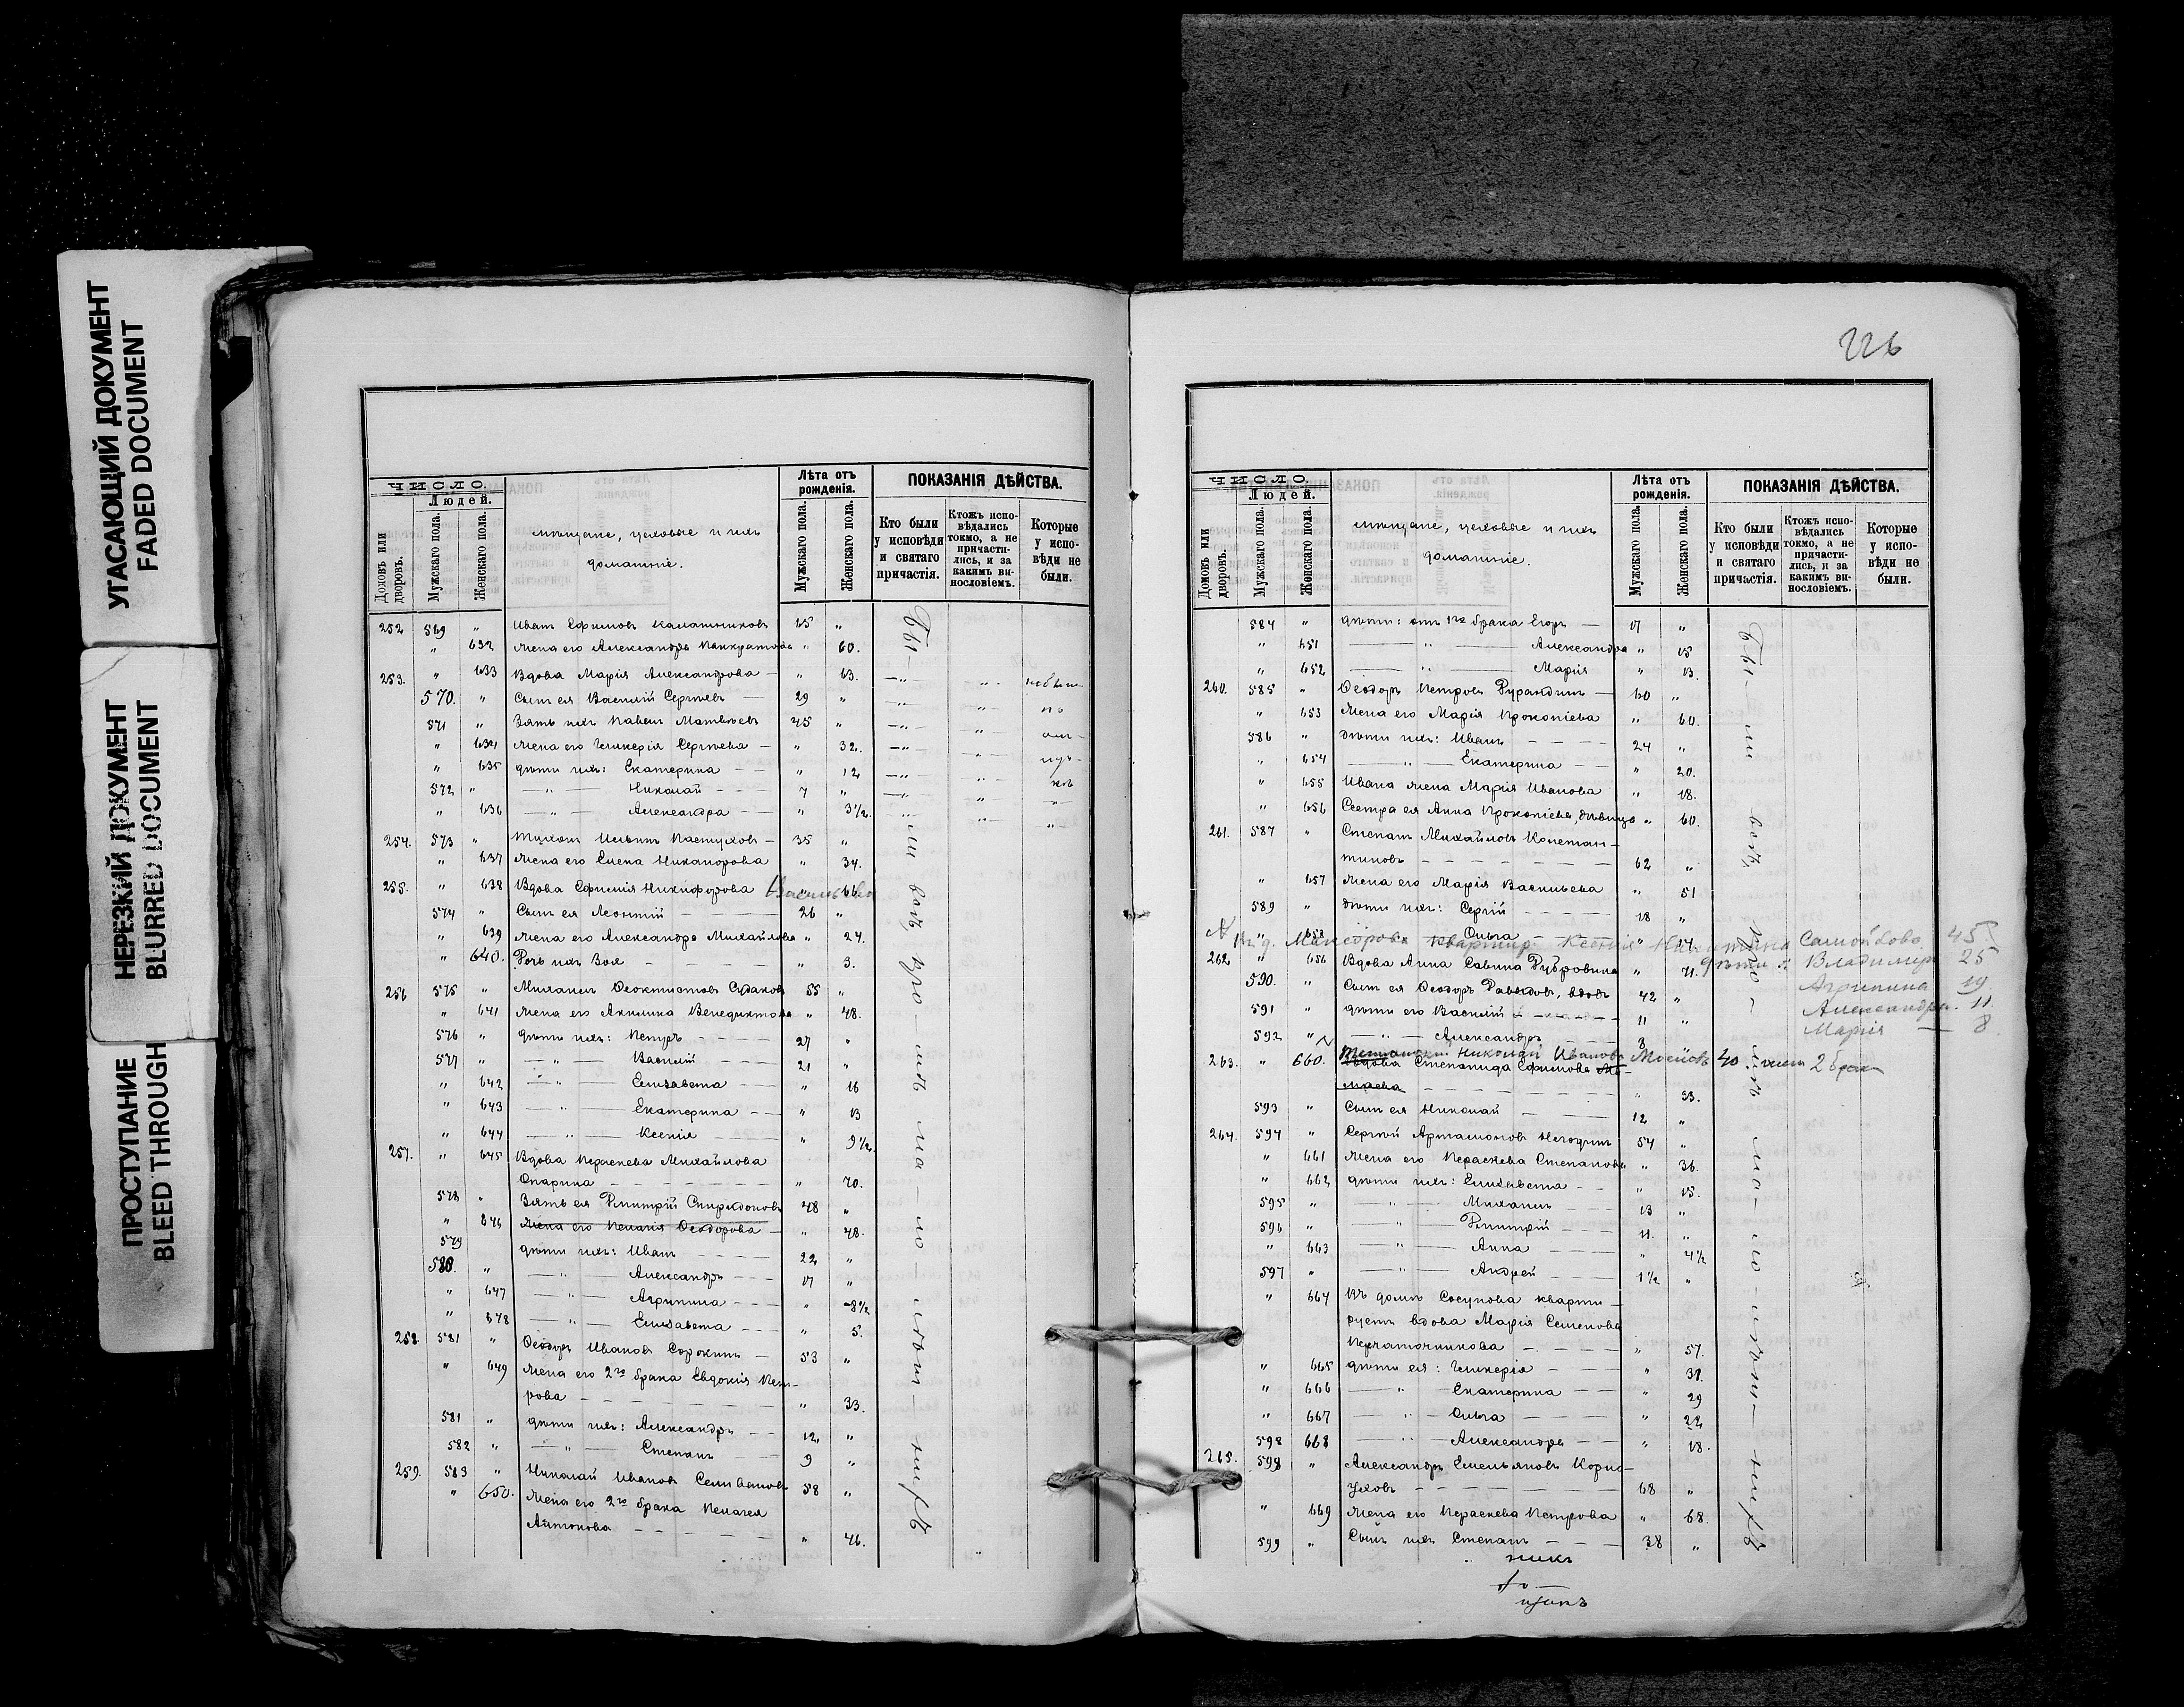 УГАСАЮЩИЙ ДОКУМЕНТ
FADED DOCUMENT
НЕРЕЗКИЙ ДОКУМЕНТ
BLURRED DOCUMENT
ПРОСТУПАНИЕ
BLEED THROUGH
ЧИСЛО.
Людей.
Домовъ или дворовъ.
Мужскаго пола.
Женскаго пола.
мѣщане, цеховые и ихъ
домашніе.
Лѣта отъ рожденія.
Мужскаго пола.
Женскаго пола.
ПОКАЗАНІЯ ДѢЙСТВА.
Кто были у исповѣди и святаго причастія.
Ктожъ исповѣдались токмо, а не причастились, и за какимъ винословіемъ.
Которые у исповѣди не были.
252 569 " Иванъ Ефимовъ Калашниковъ 65 "
" 632 Жена его Александра Панкратова " 60.
253. " 633 Вдова Марія Александрова — " 63.
570. " Сынъ ея Василій Сергѣевъ — 29 "
571 " Зять ихъ Павелъ Матвѣевъ 45 "
" 634 Жена его Гликерія Сергѣева — " 32.
" 635 дѣти ихъ: Екатерина — — " 12
572 " — " — Николай — — 7 "
" 636 — " — Александра — — " 3½.
254. 573 " Тихонъ Ильинъ Пастуховъ — 35 "
" 637 Жена его Елена Никанорова " 34.
255. " 638 Вдова Ефимія Никифорова Васильева 66
574 " Сынъ ея Леонтій — — — 26 "
" 639 Жена его Александра Михайлова " 24.
" 640. Дочь ихъ Зоя — — — " 3.
256 575 " Михаилъ Ѳеоктистовъ Судаковъ 55 "
" 641 Жена его Акилина Венедиктова " 48.
576 " дѣти ихъ: Петръ — — — 27 "
577 " — " — Василій — — 21 "
" 642 — " — Елизавета — — " 16
" 643 — " — Екатерина — — " 13
" 644 — " — Ксенія — — " 9½.
257. " 645 Вдова Параскева Михайлова
Опарина — — — — " 70.
578 " Зять ея Димитрій Спиридоновъ 48 "
" 646 Жена его Пелагія Ѳеодорова — " 48.
579 дѣти ихъ: Иванъ — — — 22 "
580. " — " — Александръ — — 17 "
" 647 — " — Агрипина — — " 8½
" 648 — " — Елизавета — — " 5.
258. 581 " Ѳеодоръ Ивановъ Сорокинъ — 53 "
" 649 Жена его 2го брака Евдокія Пет-
рова — — — — " 33.
581 " дѣти ихъ: Александръ — — 12 "
582 " — " — Степанъ — — 9 "
259. 583 " Николай Ивановъ Селивановъ 58 "
" 650. Жена его 2го брака Пелагея
Антонова — — — — " 46.
226
ЧИСЛО.
Людей.
Домовъ или дворовъ.
Мужскаго пола.
Женскаго пола.
мѣщане, цеховые и ихъ
домашніе.
Лѣта отъ рожденія.
Мужскаго пола.
Женскаго пола.
ПОКАЗАНІЯ ДѢЙСТВА.
Кто были у исповѣди и святаго причастія.
Ктожъ исповѣдались токмо, а не причастились, и за какимъ винословіемъ.
Которые у исповѣди не были.
584 " дѣти: отъ 1го брака Егоръ — 17 "
" 651 — " — Александра " 15
" 652 — " — Марія " 13.
260. 585 " Ѳеодоръ Петровъ — 60 "
" 653 Жена его Марія Прокопіева " 60.
586 " дѣти ихъ: Иванъ — — — 24 "
" 654 — " — Екатерина — — " 20.
" 655 Ивана жена Марія Иванова " 18.
" 656 Сестра ея Анна Прокопіева, дѣвица " 60.
261. 587 " Степанъ Михайловъ Констан-
тиновъ — — — — 62 "
" 657 Жена его Марія Васильева " 51
589 " дѣти ихъ: Сергій — — — 18 "
" 658 — " — Ольга — — " 14
квартир. Ксенія Никитина Самойлова 45
262 " 656 Вдова Анна Савина Дубровина " 71. дѣти: Владимиръ 25
590. " Сынъ ея Ѳеодоръ Давыдовъ, вдовъ 42 " Агрипина 19.
591 " дѣти его Василій — — — 11 " Александра. 11
592 " — " — Александръ — — 8 Марія — 8
Николай Ивановъ 40 жена 2 брака
263. " 660. Вдова Степанида Ефимова
— — — — " 33.
593 " Сынъ ея Николай — — — 12 "
264. 594 " Сергѣй Артамоновъ Негодинъ 54 "
" 661 Жена его Параскева Степанова " 36.
" 662 дѣти ихъ: Елизавета — — " 15.
595 " — " — Михаилъ — — 13 "
596 " — " — Димитрій — — 11. "
" 663 — " — Анна — — " 4½
597 " — " — Андрей — — 1½ "
" 664 Въ домѣ Сосунова кварти-
руетъ вдова Марія Семенова
Перчаточникова — — — " 57.
" 665 дѣти ея: Гликерія — — " 31.
" 666 — " — Екатерина — — " 29
" 667 — " — Ольга — — — " 22
598 668 — " — Александра — — " 18.
265. 598 " Александръ Емельяновъ
— — — — 68 "
" 669 Жена его Параскева Петрова " 68.
599 " Сынъ ихъ Степанъ — — — 38 "